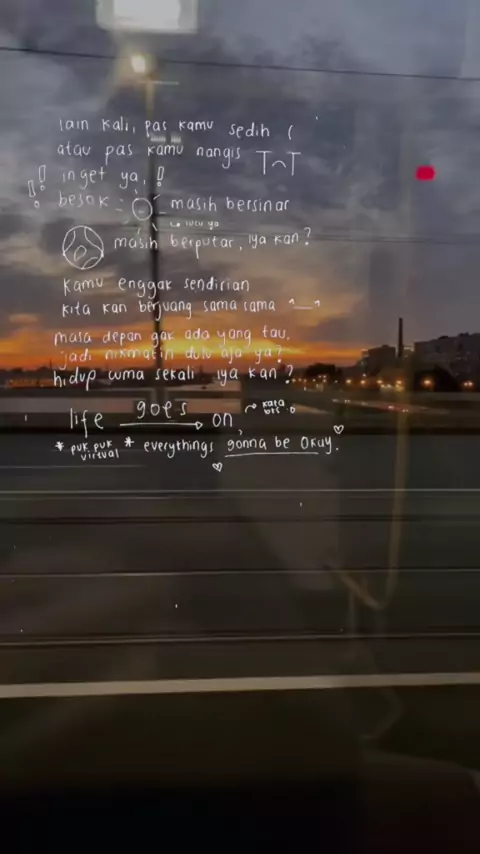 lain kali, pas kamu sedih (
atau pas kamu nangis T⌢T
!! inget ya, !!
besok : masih bersinar
↪ lucu ya
masih berputar, iya kan?
kamu enggak sendirian
kita kan berjuang sama sama ^__^
masa depan gak ada yang tau,
jadi nikmatin dulu aja ya?
hidup cuma sekali iya kan?
life goes on, → kata bts :D
* puk puk virtual * everythings gonna be okay.